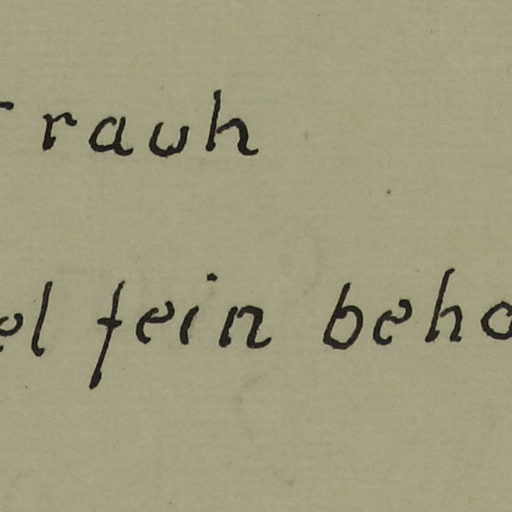 rauh
el fein beha